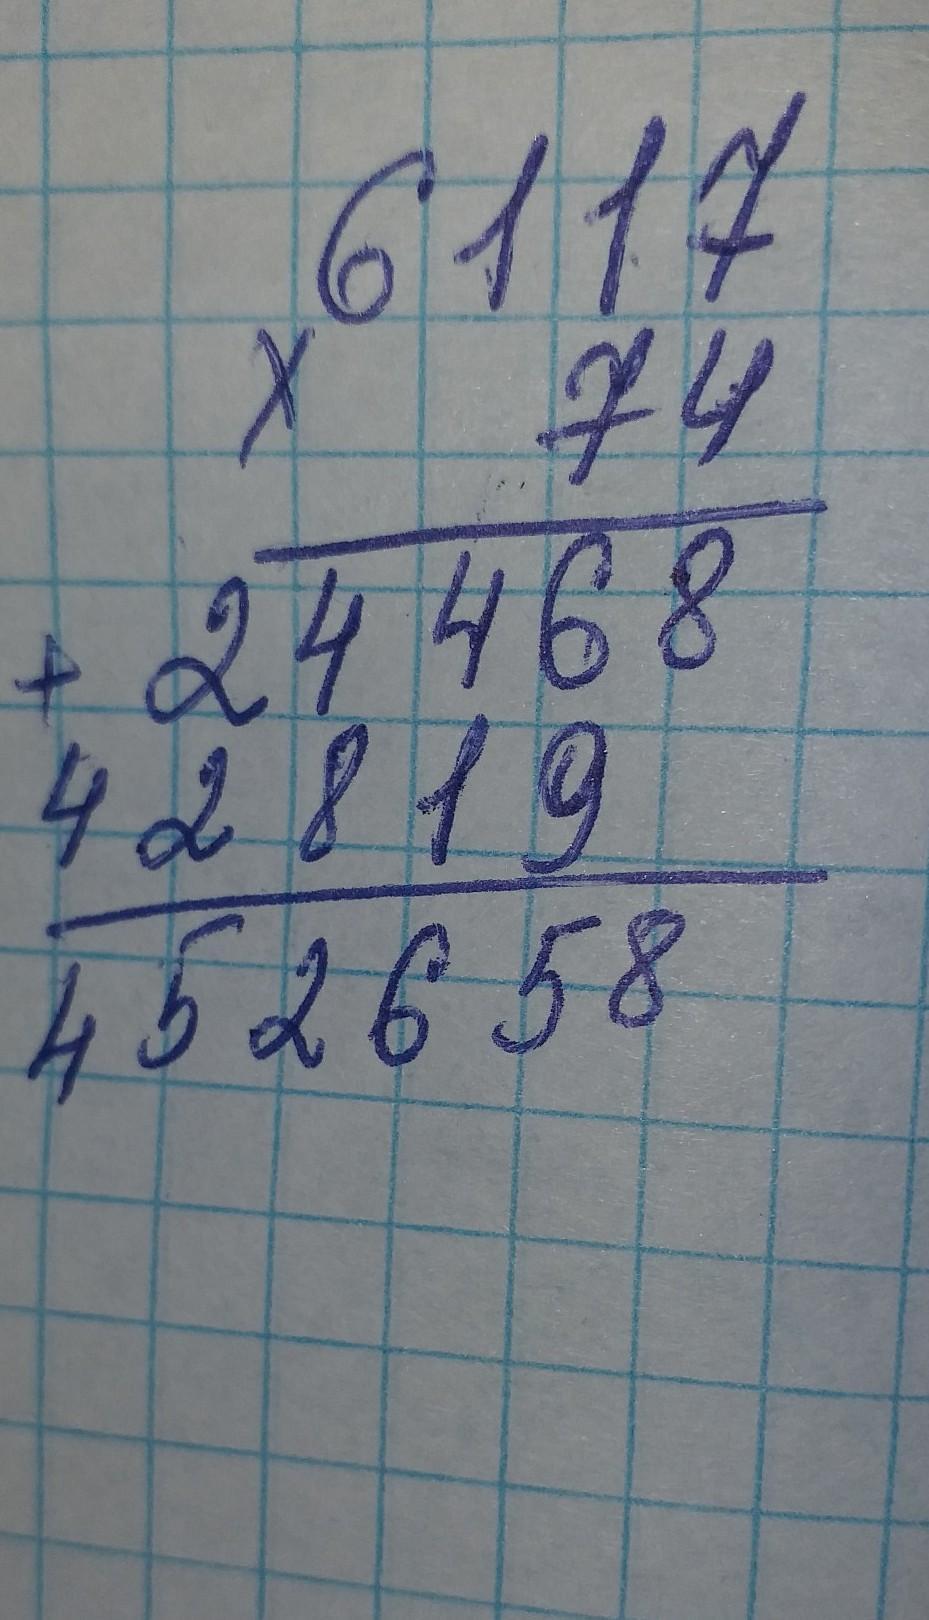 6117
x 74
+ 24468
42819
452658